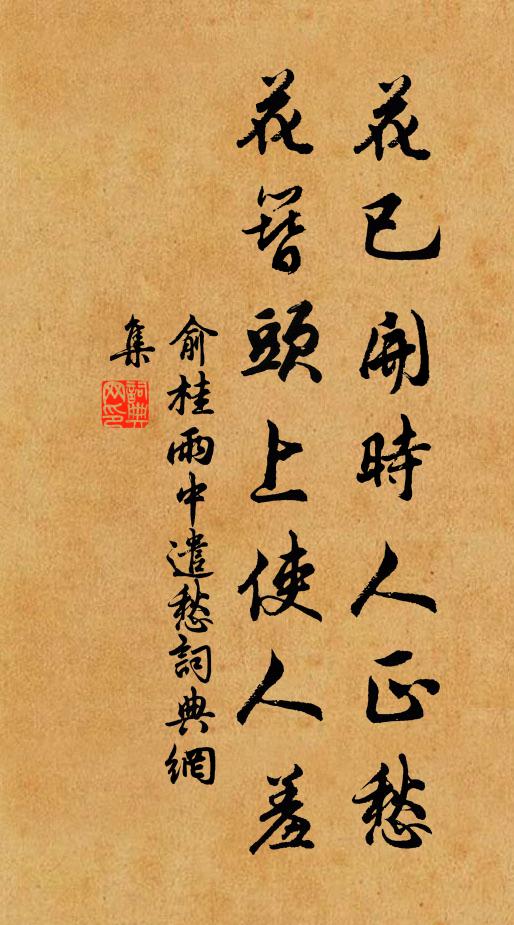 花已開時人正愁
花簪頭上使人羞
俞桂雨中遣愁詞典網
集
詞典
网印